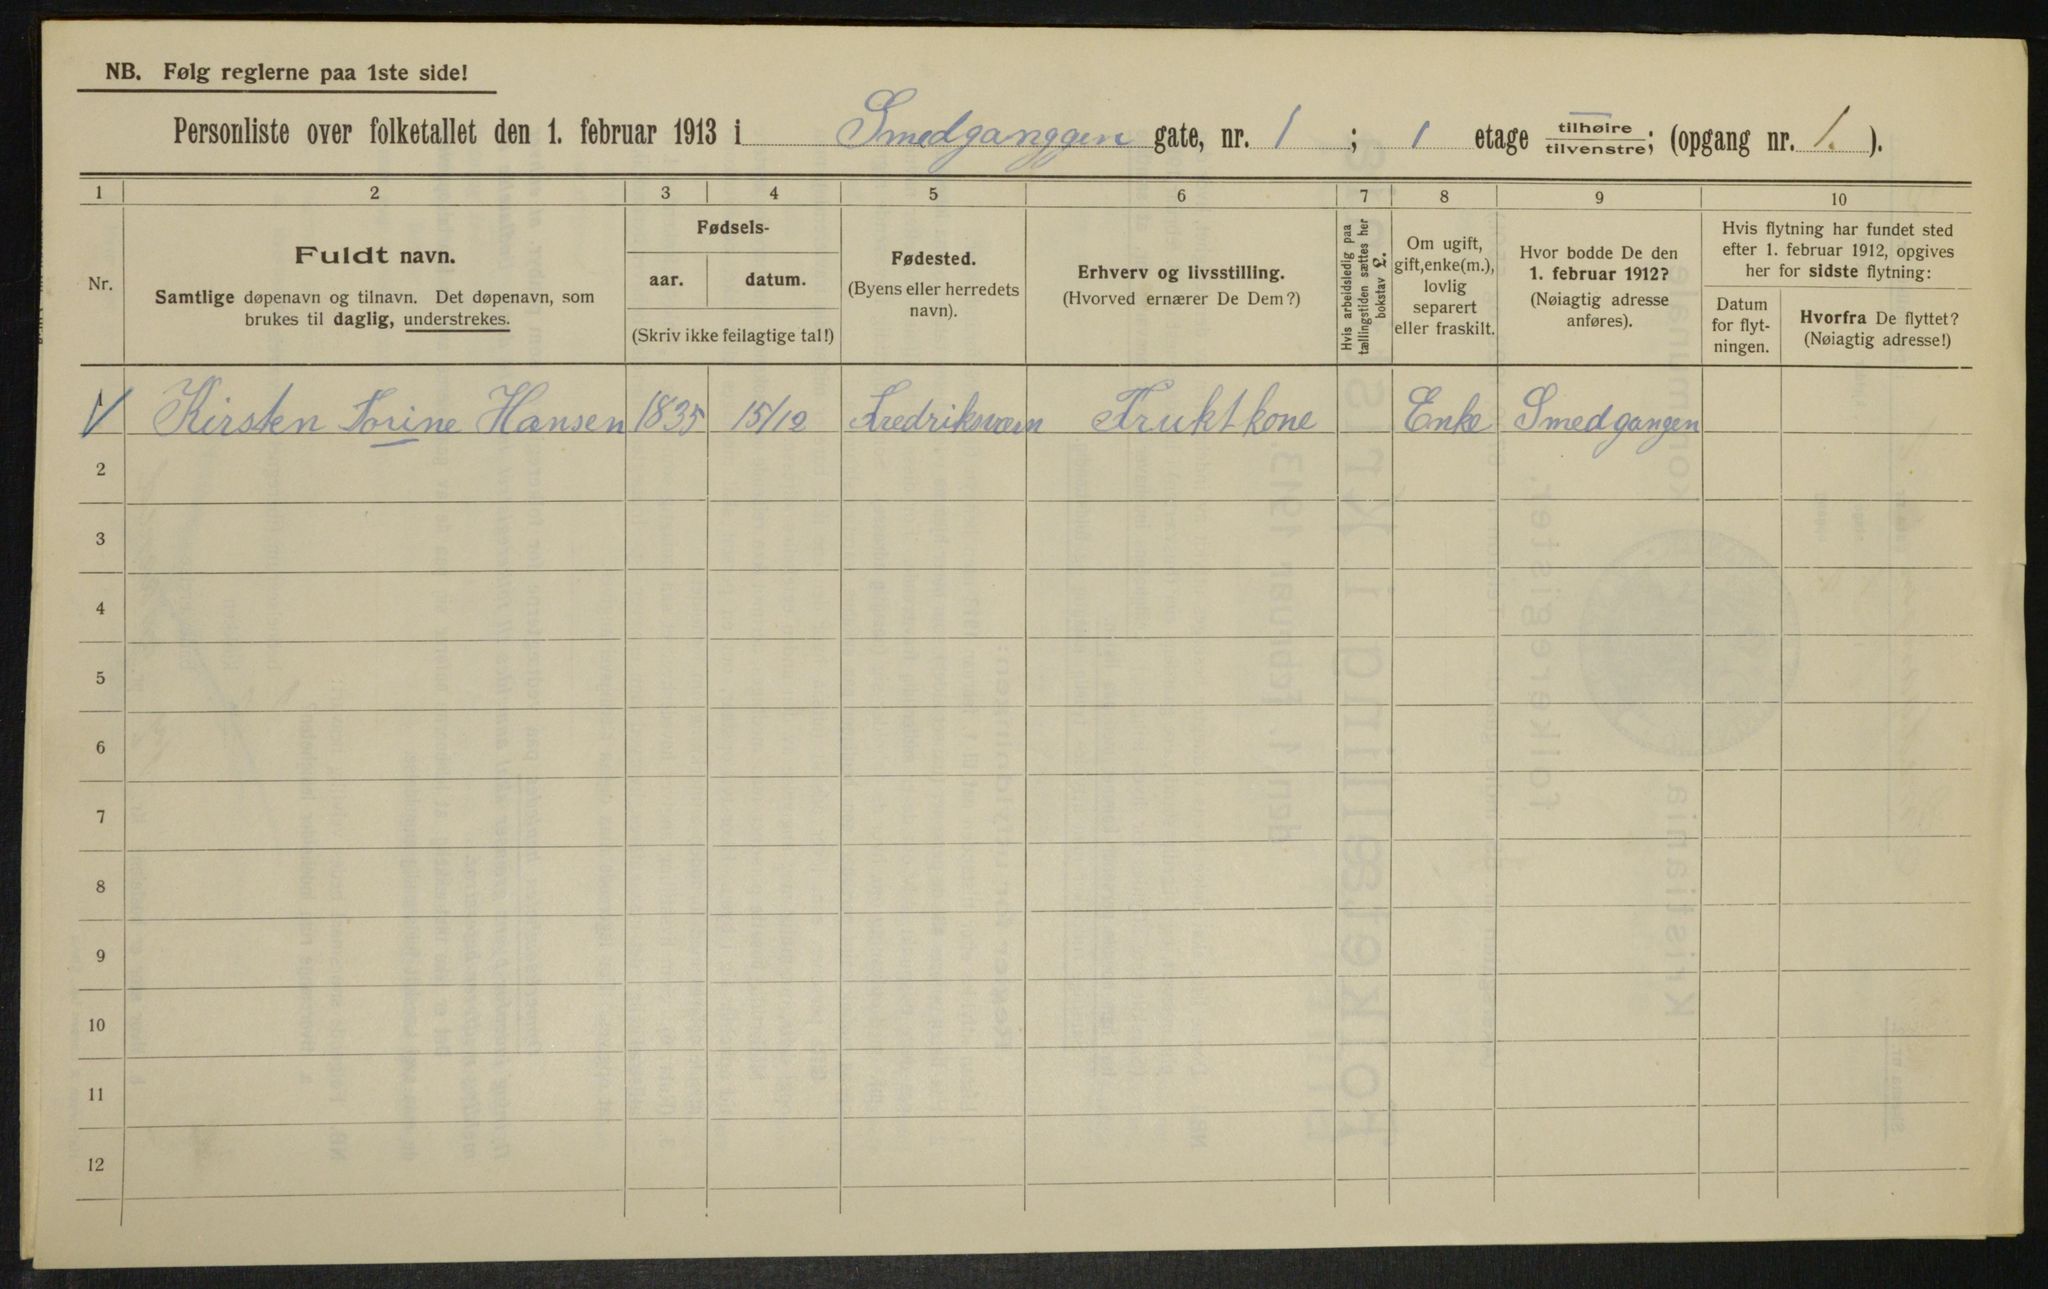 NB. Følg reglerne paa 1ste side!
Personliste over folketallet den 1. februar 1913 i Smedganggen gate, nr. 1 ; 1 etage tilhøire tilvenstre; (opgang nr. 1. ).
1 2 3 4 5 6 7 8 9 10
Nr.
Fuldt navn.
Samtlige døpenavn og tilnavn. Det døpenavn, som
brukes til daglig, understrekes.
Fødsels-
aar. datum.
(Skriv ikke feilagtige tal!)
Fødested.
(Byens eller herredets
navn).
Erhverv og livsstilling.
(Hvorved ernærer De Dem?)
Hvis arbeidsledig paa
tællingstiden sættes her
bokstav L.
Om ugift,
gift, enke(m.),
lovlig
separert
eller fraskilt.
Hvor bodde De den
1. februar 1912?
(Nøiagtig adresse
anføres).
Hvis flytning har fundet sted
efter 1. februar 1912, opgives
her for sidste flytning:
Datum
for flyt-
ningen.
Hvorfra De flyttet?
(Nøiagtig adresse!)
1 Kirsten Sorine Hansen 1835 15/12 Fredriksværn Frukt kone Enke Smedgangen
2
3
4
5
6
7
8
9
10
11
12